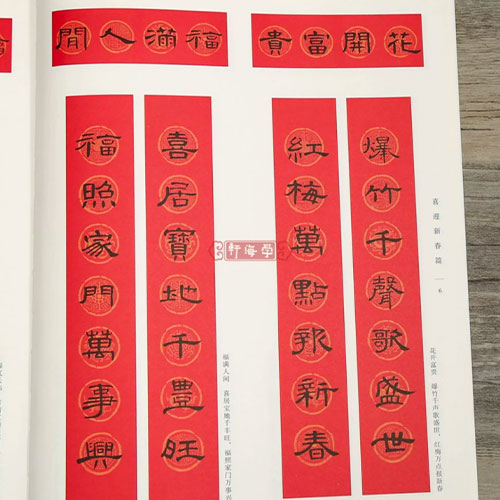 花開富貴
爆竹千聲歌盛世
紅梅萬點報新春
福滿人閒
喜居寶地千豐旺
福照家門萬事興
喜迎新春篇
6
花开富贵 爆竹千声歌盛世，红梅万点报新春
福满人间 喜居宝地千丰旺，福照家门万事兴
卓海軒